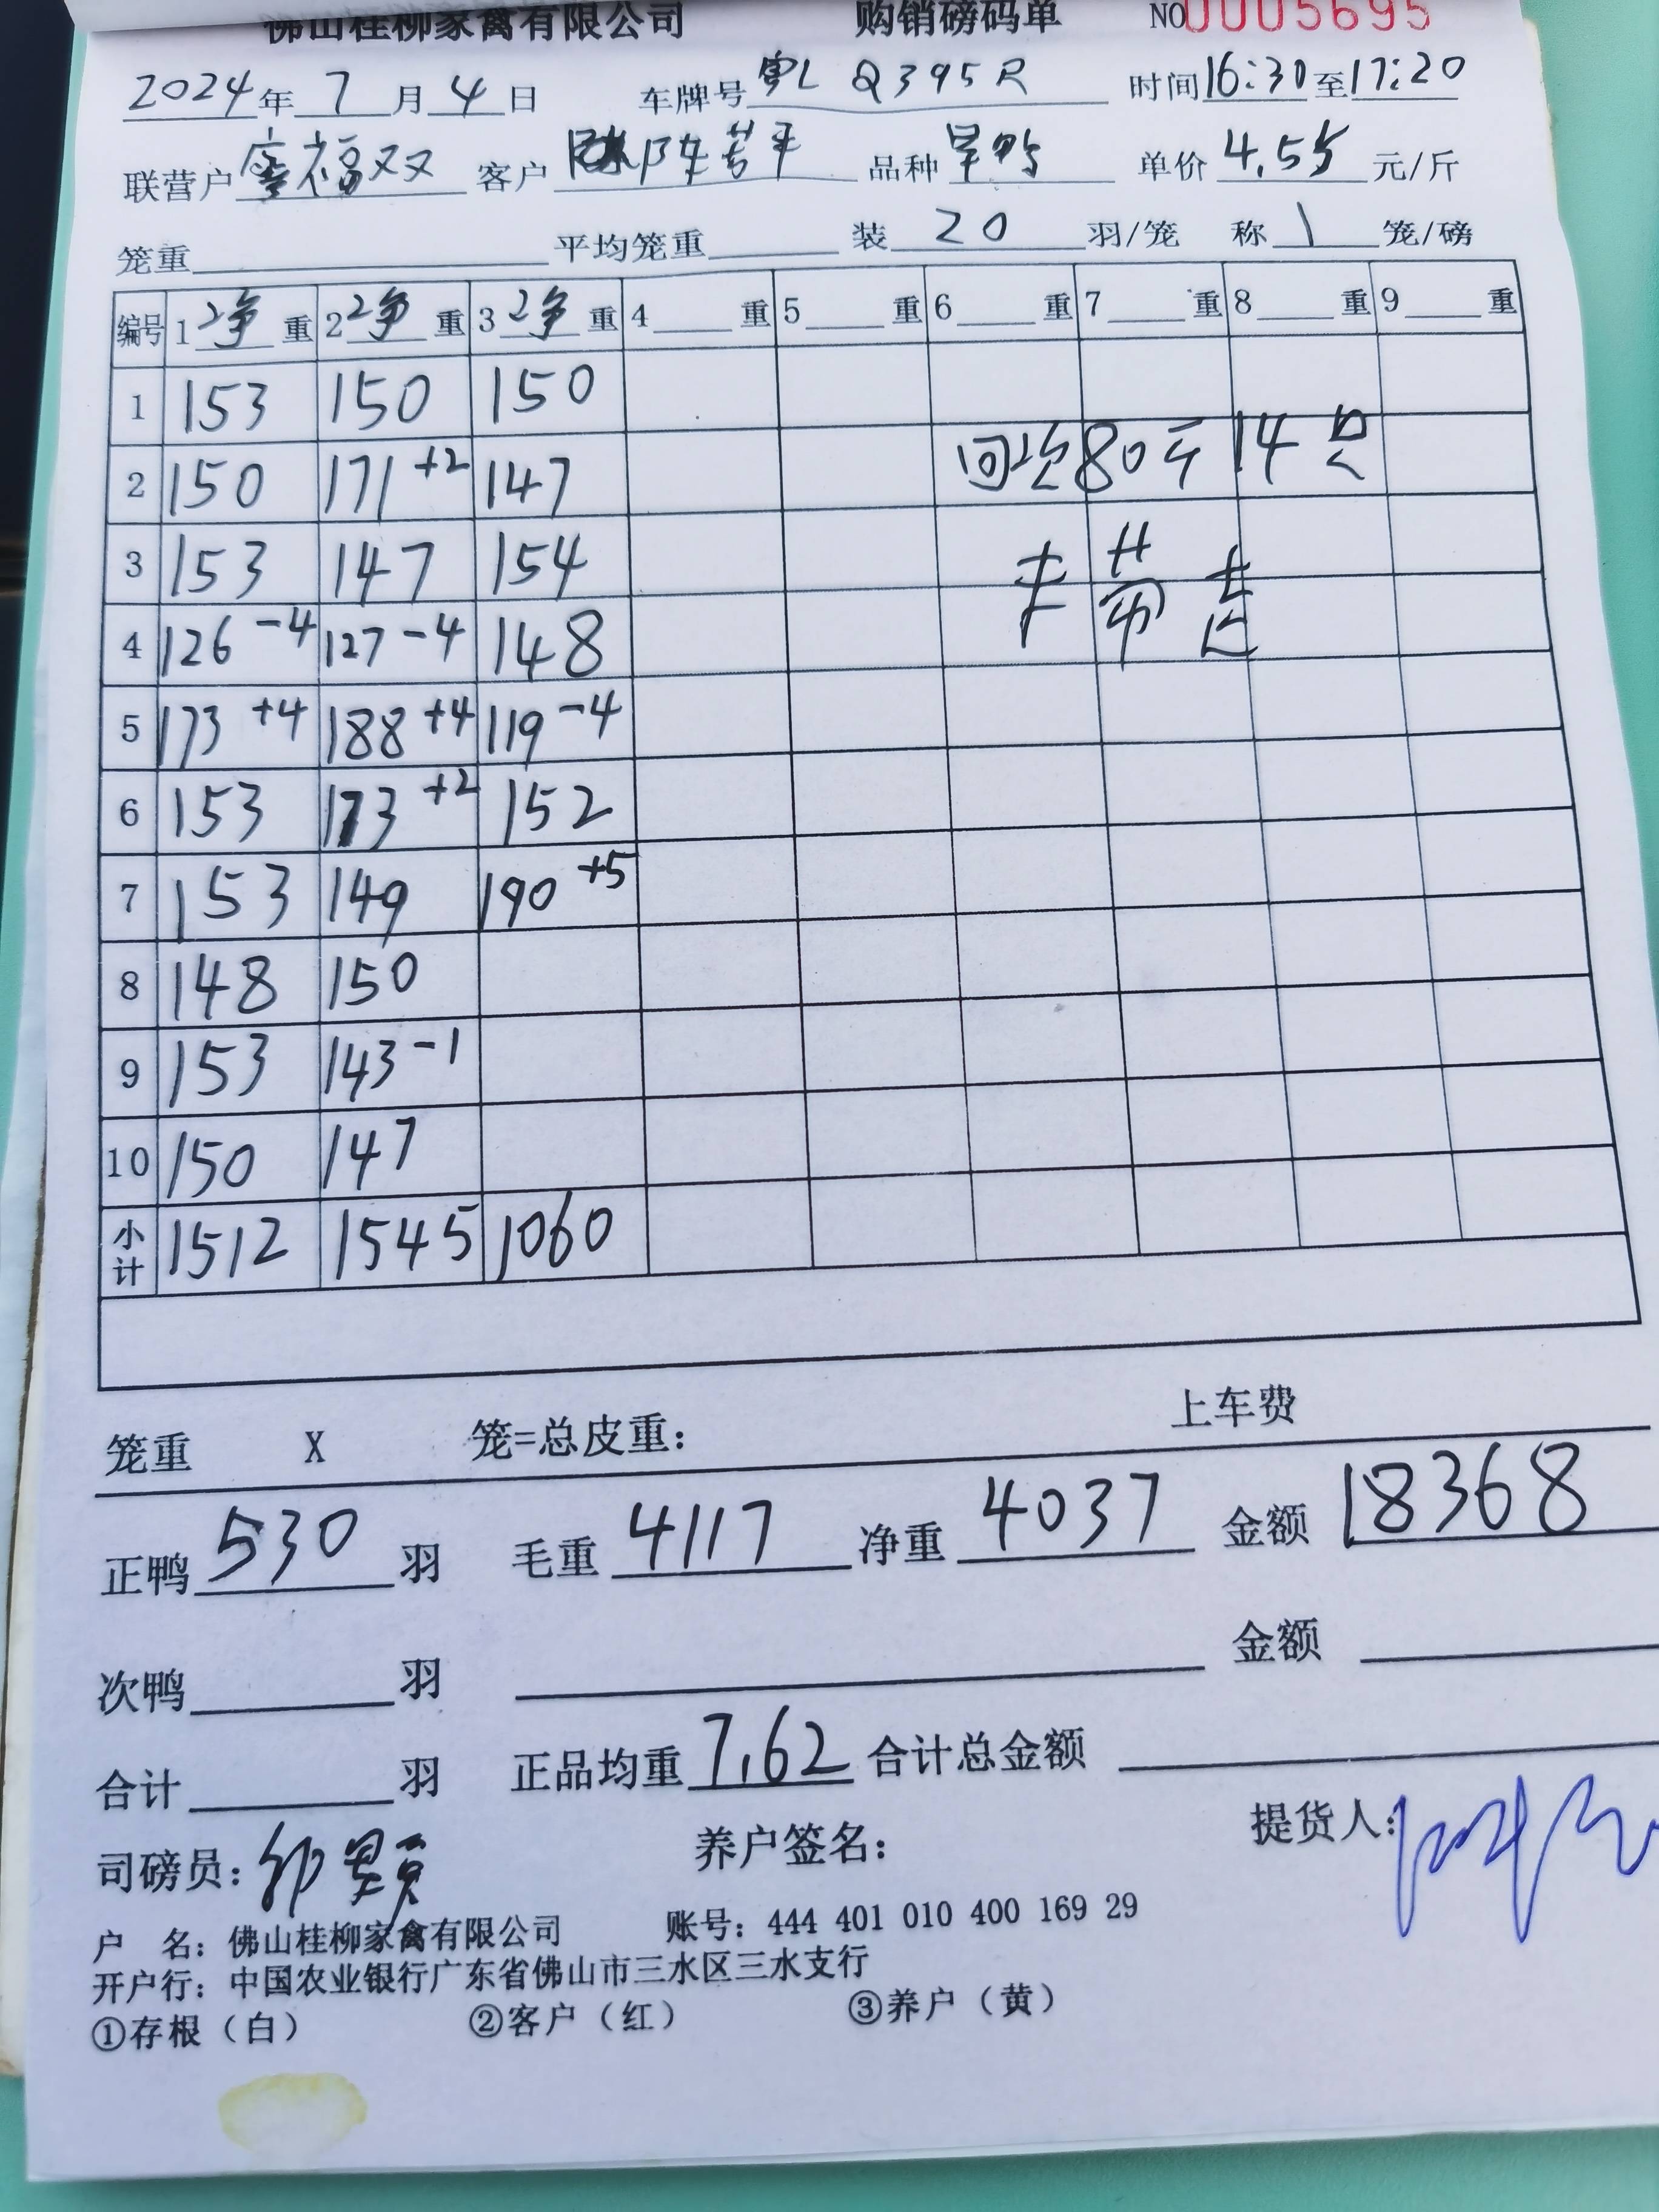 佛山桂柳家禽有限公司 购销磅码单 NO 0005695
2024年 7月 4日 车牌号 粤L Q395R 时间16:30至17:20
联营户 福双 客户 陈芳平 品种 旱鸭 单价 4.55 元/斤
笼重 平均笼重 装 20 羽/笼 称 1 笼/磅
编号 1 净 重 2 净 重 3 净 重 4 重 5 重 6 重 7 重 8 重 9 重
1 153 150 150
2 150 171+2 147 回 80斤 14只
3 153 147 154
4 126-4 127-4 148
5 173+4 188+4 119-4
6 153 173+2 152
7 153 149 190+5
8 148 150
9 153 143-1
10 150 147
小计 1512 1545 1060
笼重 X 笼=总皮重： 上车费
正鸭 530 羽 毛重 4117 净重 4037 金额 18368
次鸭 羽 金额
合计 羽 正品均重 7.62 合计总金额
司磅员： 养户签名： 提货人：
户 名：佛山桂柳家禽有限公司 账号：444 401 010 400 169 29
开户行：中国农业银行广东省佛山市三水区三水支行
①存根（白） ②客户（红） ③养户（黄）